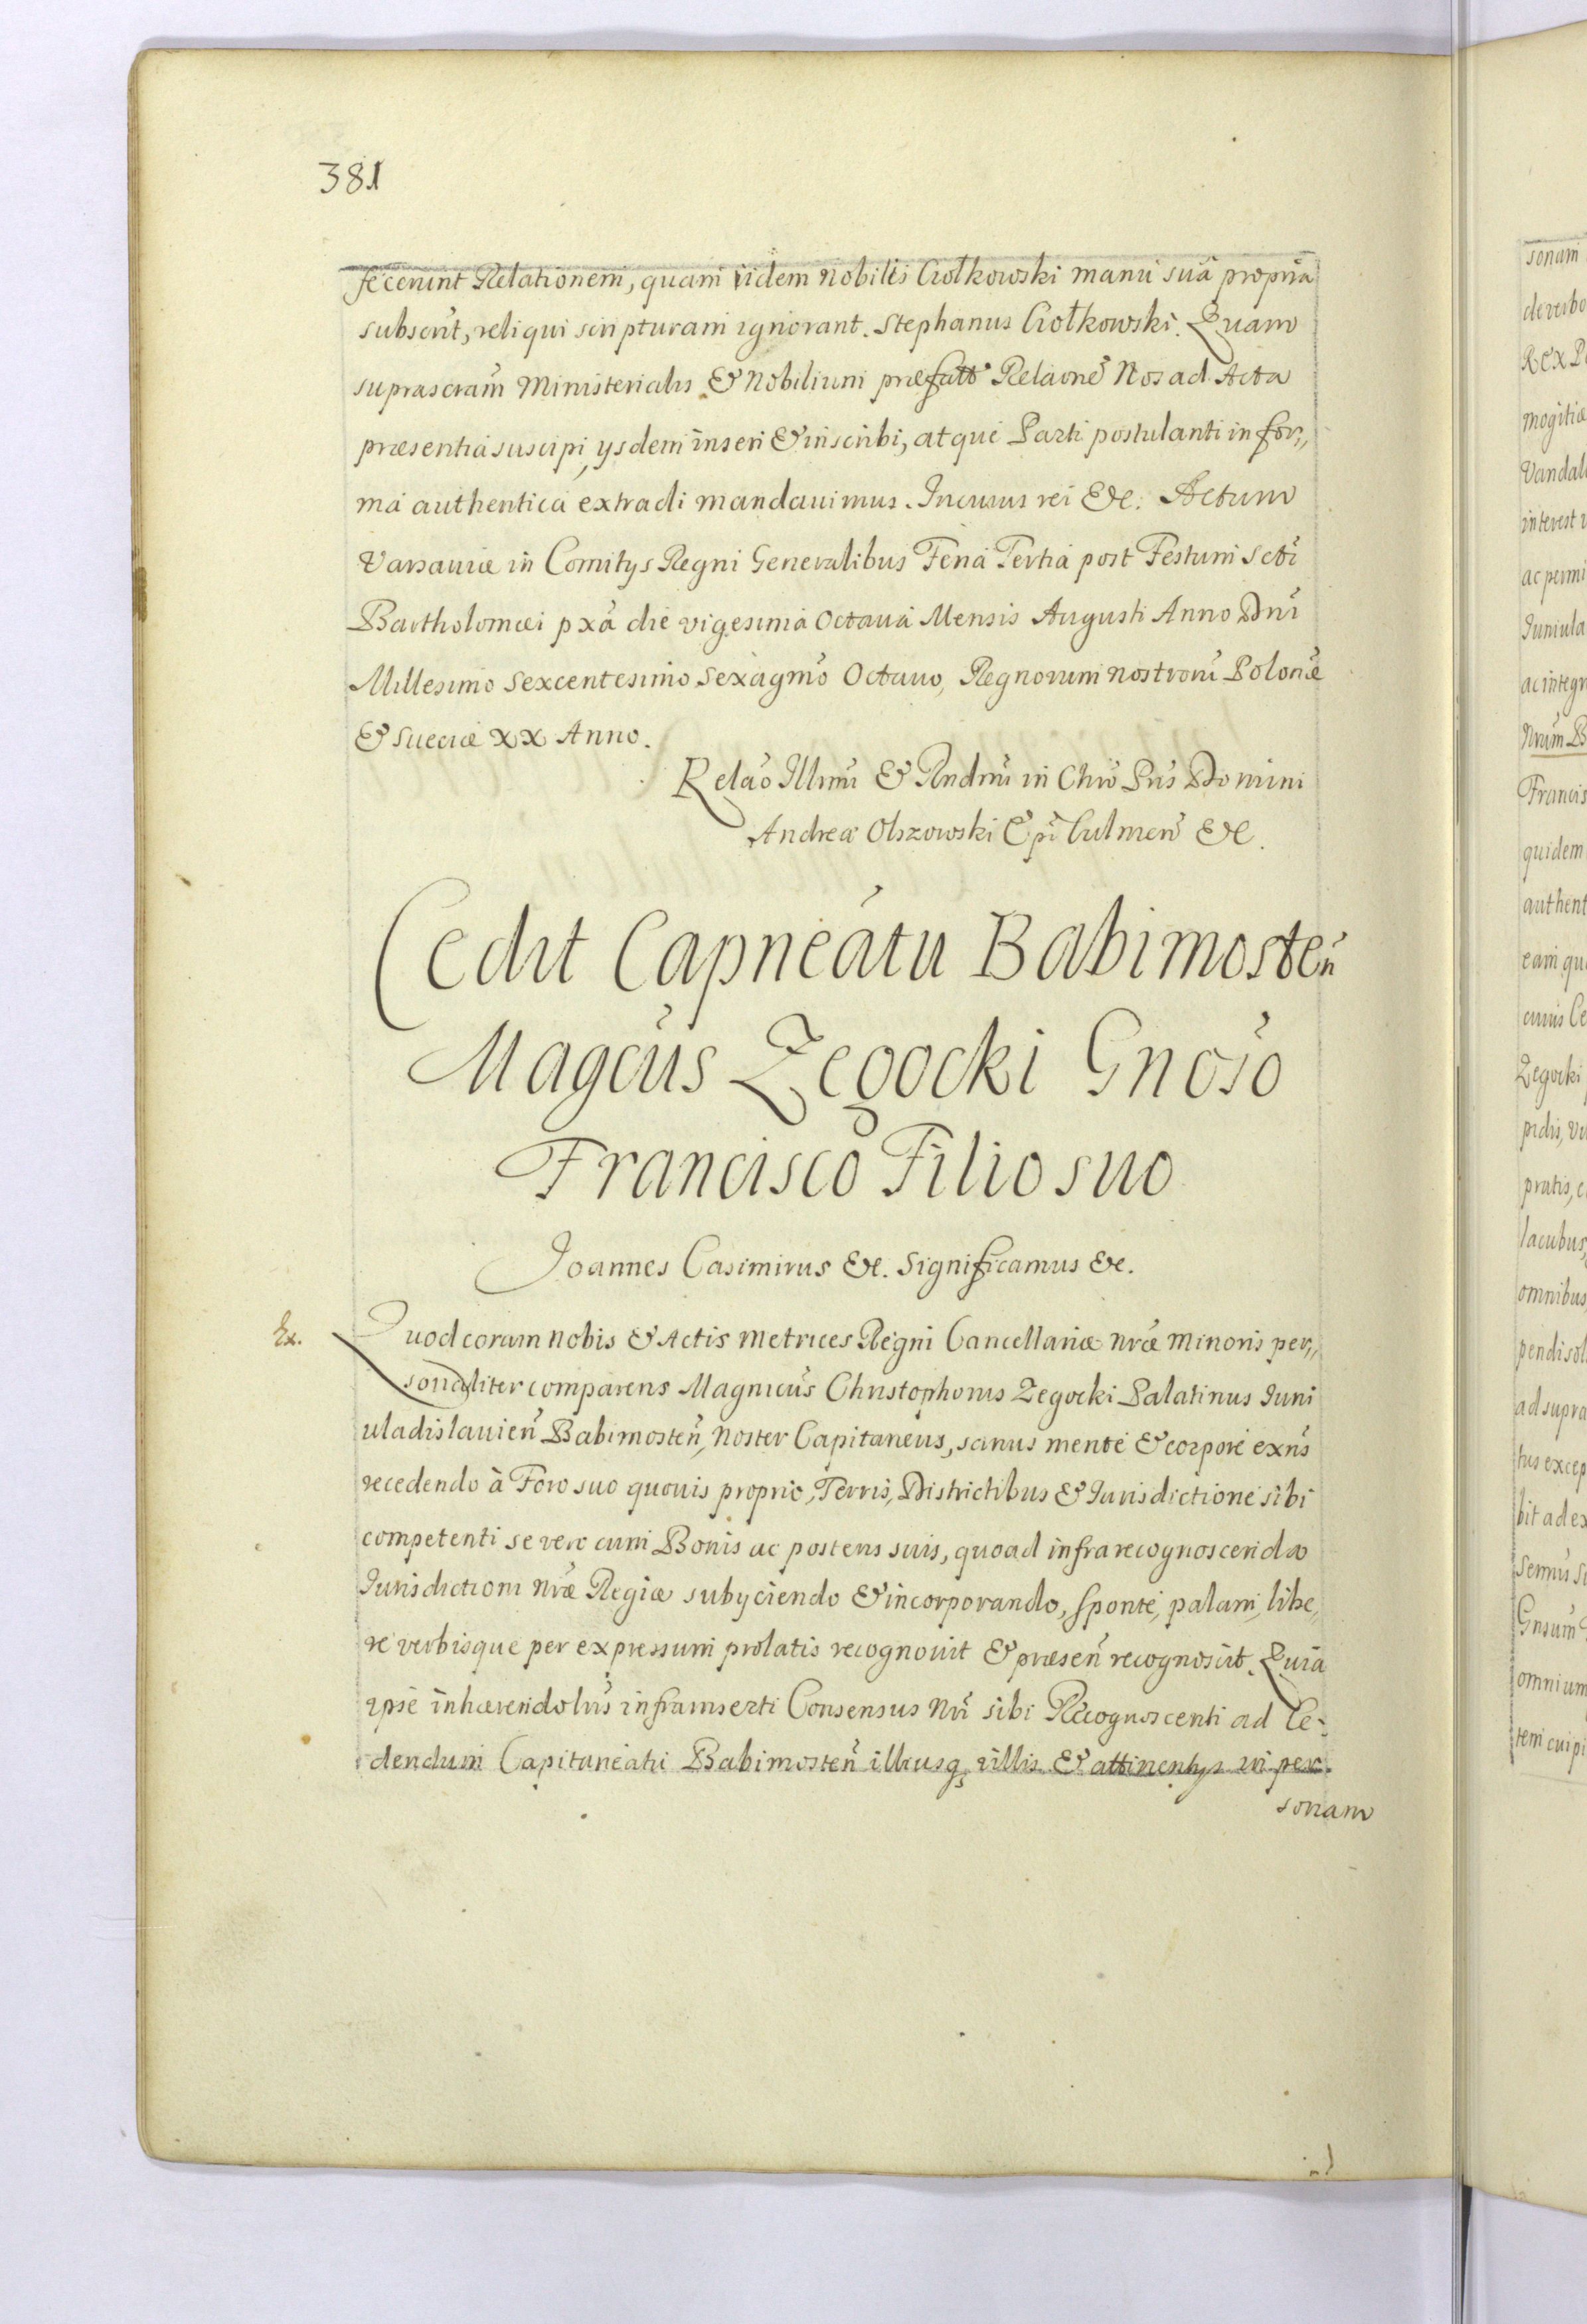 381
fecerunt Relationem, quam iidem Nobilis Ciołkowski manu suâ propria
subscrűt, reliqui scripturam ignorant. Stephanus Ciołkowski. Quam
suprascram̃ Ministerialis & Nobilium præfatt Relaõnẽ Nos ad Acta
præsentia suscipi, ysdem inseri & inscribi, atque Parti postulanti in for,,
ma authentica extradi mandauimus. In cuius rei &c. Actum
Varsauiæ in Comitys Regni Generalibus Feria Tertia post Festum Scti
Bartholomæi pxã die vigesima Octaua Mensis Augusti Anno Dnĩ
Millesimo Sexcentesimo Sexagmõ Octauo, Regnorum nostrorũ Poloniæ
& Sueciæ XX Anno.
Relaõ Illrmi & Rndmi in Chrõ Pris Domini
Andreæ Olszowski Epĩ Culmeñ &c.
Cedit Capneatu Babimosteñ
Magcus Zegocki Gnoso
Francisco Filio suo
Joannes Casimirus &c. Significamus &c.
Ex.
Quod coram nobis & Actis Metrices Regni Cancellariæ nrӕ Minoris per,,
sonaliter comparens Magnicũs Christophorus Zegocki Palatinus Juni
uladislauieñ Babimosteñ, Noster Capitaneus, sanus mente & corpore exñs
recedendo à Foro suo quouis proprio, Terris, Districtibus & Jurisdictione sibi
competenti se vero cum Bonis ac posteris suis, quoad infra recognoscenda
Jurisdictioni nrӕ Regiæ subyciendo & incorporando, sponte, palam, libe,
re verbisque per expressum prolatis recognouit & præseñ recognoscit. Quia
ipse inhærendo infrainserti Consensus nrĩ sibi Recognoscenti ad Ce-
dendum Capitaneatu Babimosteñ illiusq, villis & attinentys in per-
sonam
sonam
de verbo
Rex P
mogitiæ
Vandal
interest
ac permi
Juniula
ac integr
Nrum B
Francis
quidem
authent
eam qu
cuius Ce
Zegocki
pratis, c
lacubus,
omnibus
ad supra
tus excep
bit ad ex
omnium